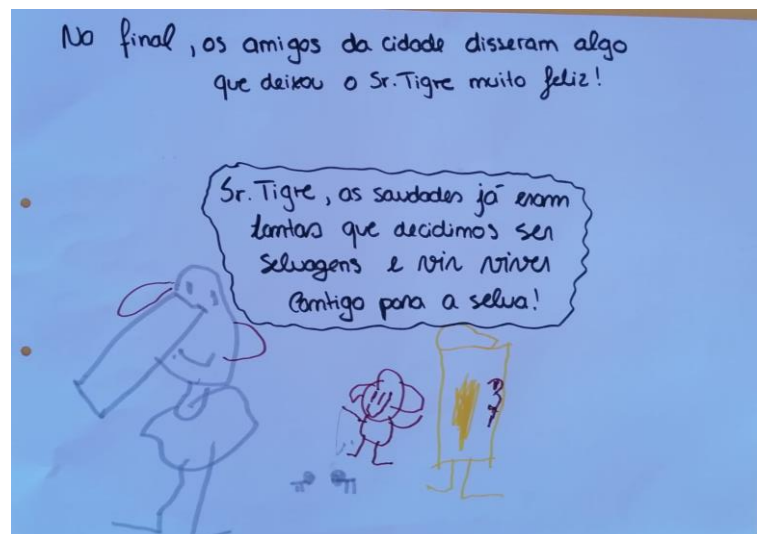 No final, os amigos da cidade disseram algo
que deixou o Sr. Tigre muito feliz!
Sr. Tigre, as saudades já eram
tantas que decidimos ser
selvagens e vir viver
contigo para a selva!